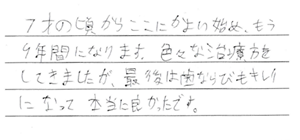 7才の頃からここにかよい始め、もう
9年間になります。色々な治療方を
してきましたが、最後は歯ならびもキレイ
になって本当に良かったです。